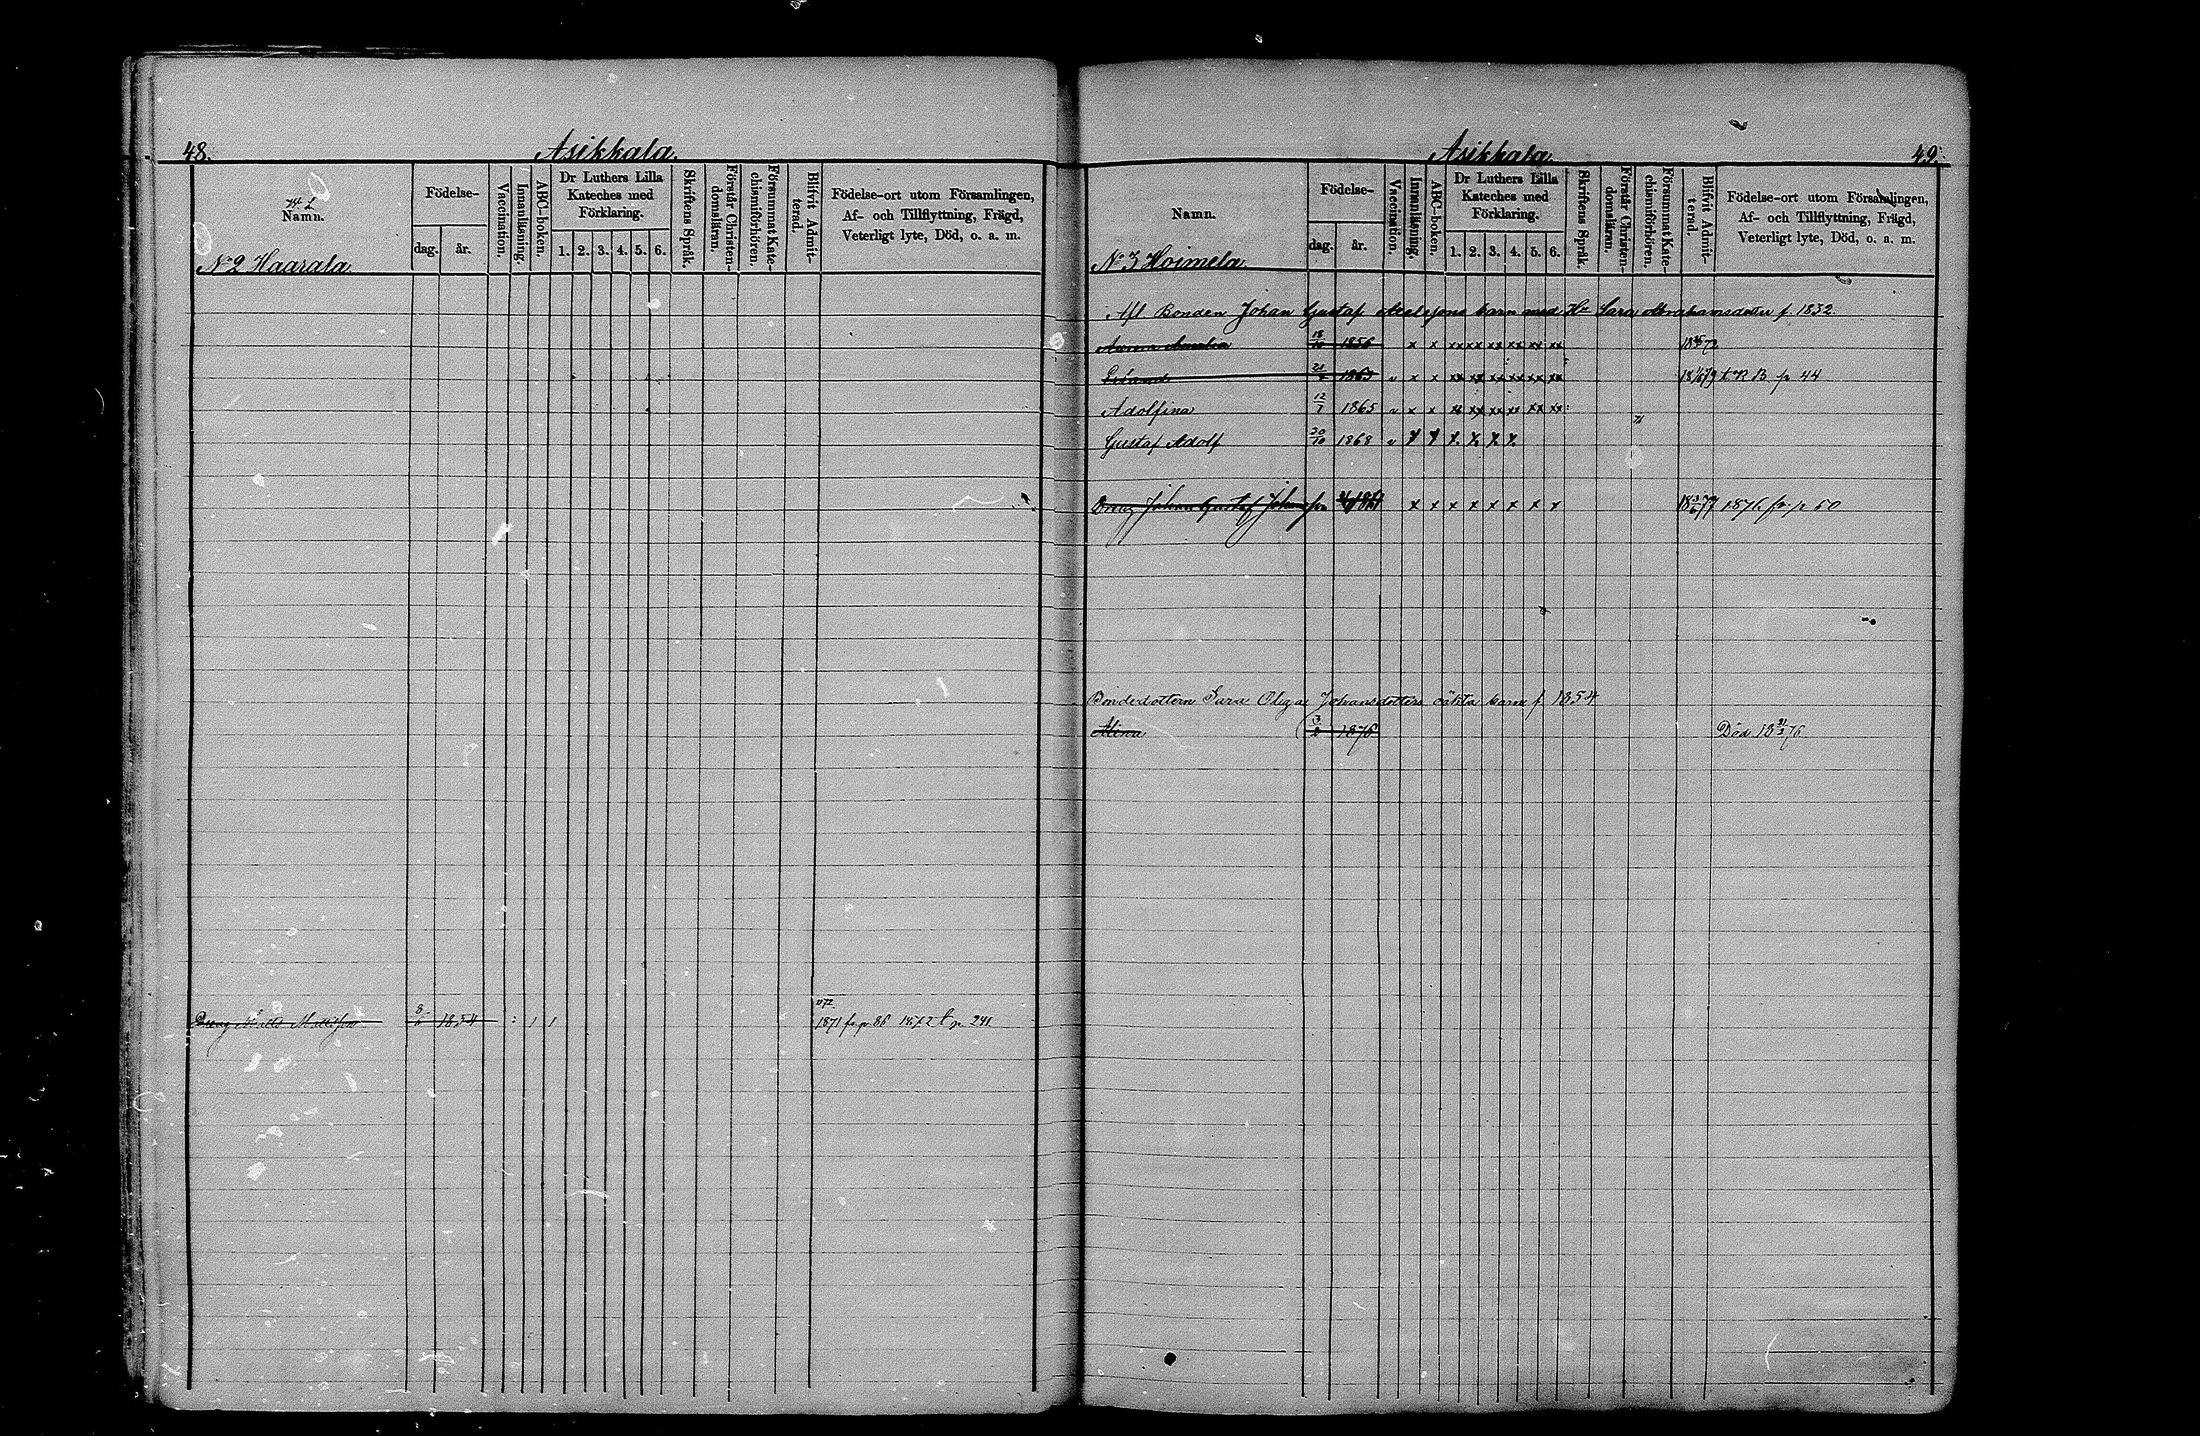 48.
Asikkala.
Namn.
Födelse-
dag.
år.
Vaccination.
Innanläsning.
ABC-boken.
Dr Luthers Lilla
Kateches med
Förklaring.
1. 2. 3. 4. 5. 6.
Skriftens Språk.
Förstår Christen-
domsläran.
Försummat Kate-
chismiförhören.
Blifvit Admit-
terad.
Födelse-ort utom Församlingen,
Af- och Tillflyttning, Frägd,
Veterligt lyte, Död, o. a. m.
No 2 Haarala.
Dreng Matts Mattsson 1854 1 1 1871 fr p 86 1872 t p 241
Asikkala.
49.
Namn.
Födelse-
dag.
år.
Vaccination.
Innanläsning.
ABC-boken.
Dr Luthers Lilla
Kateches med
Förklaring.
1. 2. 3. 4. 5. 6.
Skriftens Språk.
Förstår Christen-
domsläran.
Försummat Kate-
chismiförhören.
Blifvit Admit-
terad.
Födelse-ort utom Församlingen,
Af- och Tillflyttning, Frägd,
Veterligt lyte, Död, o. a. m.
No 3 Hoimela.
Afl Bonden Johan Gustaf barn med Hu Sara Abrahamsdotter f. 1832.
Amalia 18/10 1856 x x xx xx xx xx xx xx
21 1863 x x xx xx xx xx xx xx t. R B p 44
Adolfina 12/7 1865 x x xx xx xx xx xx xx
Gustaf Adolf 20/10 1868 x x x x x x
Dreng Johan Gustaf Johansson x x x x x x x x 1876 fr p 50
Bondedottern Sara Olga Johansdotters oäkta barn f. 1854
Alina 1876 Död 18 31/3 76